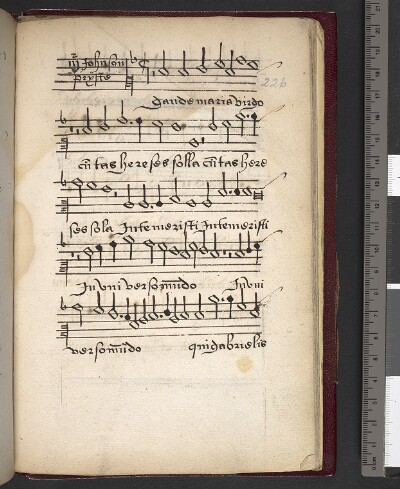 iij Johnson
preste
226
Gaude maria virgo
cūtas hereses solla cūtas here
ses sola Intemeristi Intemeristi
In vni verso mūdo In vni
verso mūdo qui gabrielis